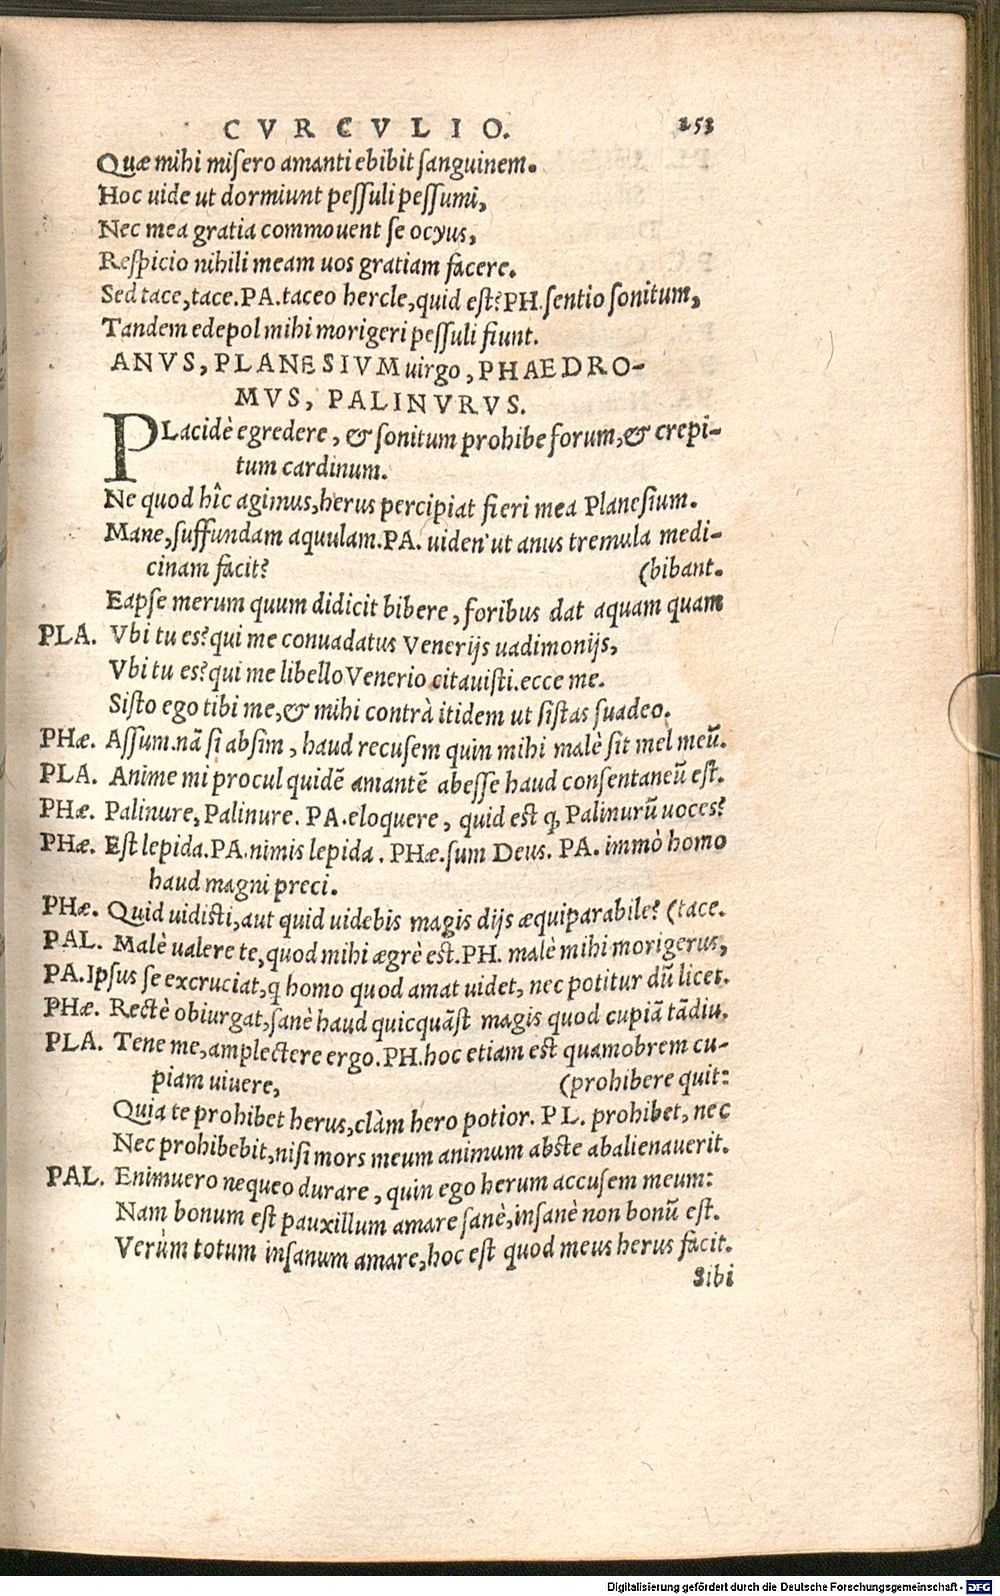 CVRCVLIO. 253
Quæ mihi misero amanti ebibit sanguinem.
Hoc uide ut dormiunt pessuli pessumi,
Nec mea gratia commouent se ocyus,
Respicio nihili meam uos gratiam facere.
Sed tace, tace. PA. taceo hercle, quid est? PH. sentio sonitum,
Tandem edepol mihi morigeri pessuli fiunt.
ANVS, PLANESIVM uirgo, PHAEDRO-
MVS, PALINVRVS.
PLacidè egredere, & sonitum prohibe forum, & crepi-
tum cardinum.
Ne quod hîc agimus, herus percipiat fieri mea Planesium.
Mane, suffundam aquulam. PA. uiden' ut anus tremula medi-
cinam facit? (bibant.
Eapse merum quum didicit bibere, foribus dat aquam quam
PLA. Vbi tu es? qui me conuadatus Venerijs uadimonijs,
Vbi tu es? qui me libello Venerio citauisti. ecce me.
Sisto ego tibi me, & mihi contrà itidem ut sistas suadeo.
PHæ. Assum. nã si absim, haud recusem quin mihi malè sit mel meũ.
PLA. Anime mi procul quidẽ amantẽ abesse haud consentaneũ est.
PHæ. Palinure, Palinure. PA. eloquere, quid est ꝙ Palinurũ uoces?
PHæ. Est lepida. PA. nimis lepida. PHæ. sum Deus. PA. immò homo
haud magni preci.
PHæ. Quid uidisti, aut quid uidebis magis dijs æquiparabile? (tace.
PAL. Malè ualere te, quod mihi ægrè est. PH. malè mihi morigerus,
PA. Ipsus se excruciat, q homo quod amat uidet, nec potitur dũ licet.
PHæ. Rectè obiurgat, sanè haud quicquãst magis quod cupiã tãdiu.
PLA. Tene me, amplectere ergo. PH. hoc etiam est quamobrem cu-
piam uiuere, (prohibere quit:
Quia te prohibet herus, clàm hero potior. PL. prohibet, nec
Nec prohibebit, nisi mors meum animum abste abalienauerit.
PAL. Enimuero nequeo durare, quin ego herum accusem meum:
Nam bonum est pauxillum amare sanè, insanè non bonũ est.
Verùm totum insanum amare, hoc est quod meus herus facit.
Sibi
Digitalisierung gefördert durch die Deutsche Forschungsgemeinschaft - DFG